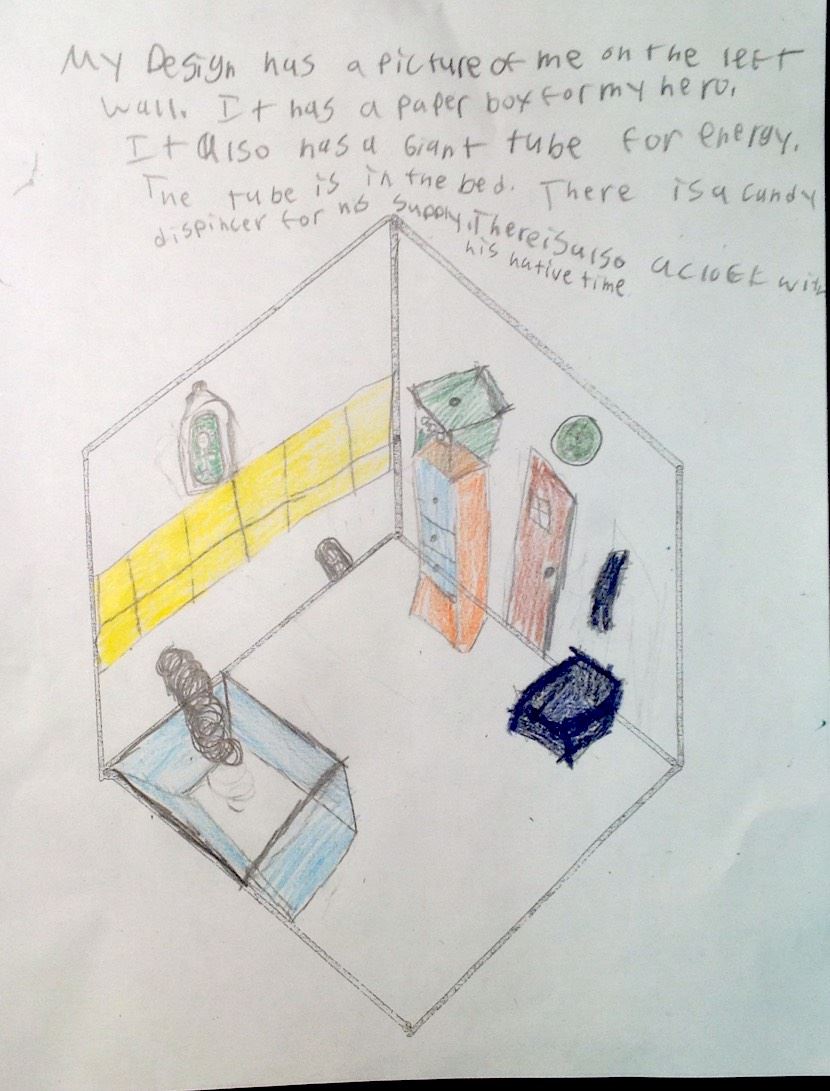 My Design has a picture of me on the left
wall. It has a paper box for my hero.
It also has a Giant tube for energy.
The tube is in the bed. There is a candy
dispincer for his supply. There is also a cloek with
his native time